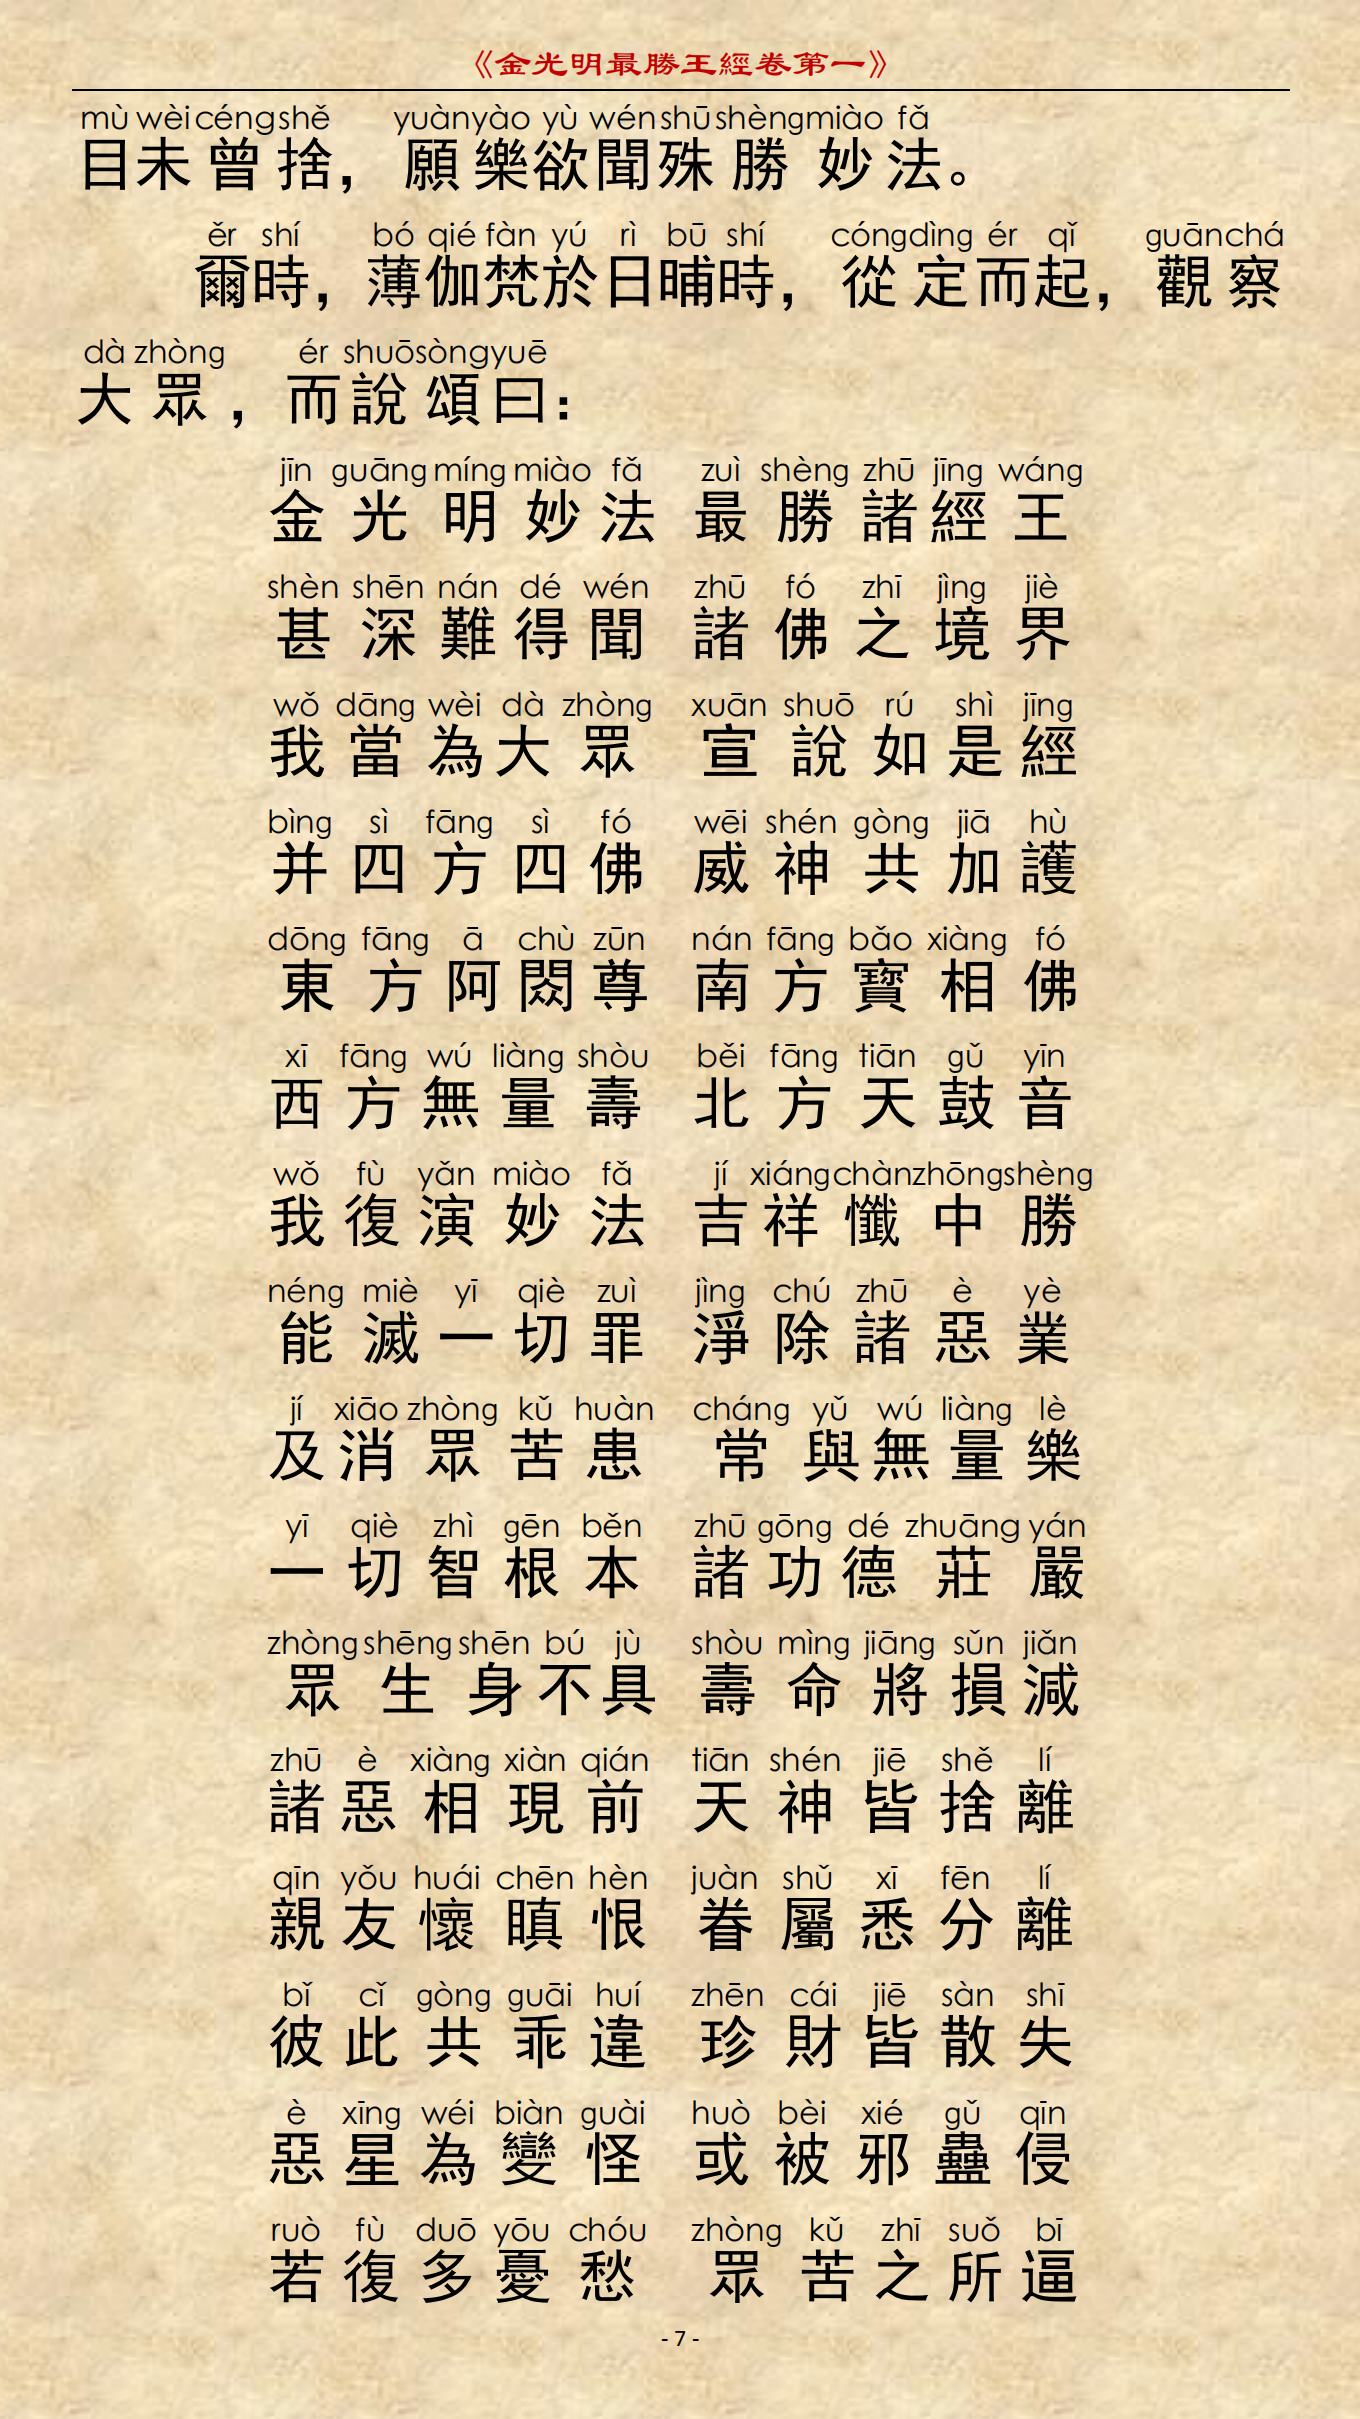 《金光明最勝王經卷第一》
mù wèi céng shě yuàn yào yù wén shū shèng miào fǎ
目未曾捨，願樂欲聞殊勝妙法。
ěr shí bó qié fàn yú rì bū shí cóng dìng ér qǐ guān chá
爾時，薄伽梵於日晡時，從定而起，觀察
dà zhòng ér shuō sòng yuē
大眾，而說頌曰：
jīn guāng míng miào fǎ zuì shèng zhū jīng wáng
金光明妙法 最勝諸經王
shèn shēn nán dé wén zhū fó zhī jìng jiè
甚深難得聞 諸佛之境界
wǒ dāng wèi dà zhòng xuān shuō rú shì jīng
我當為大眾 宣說如是經
bìng sì fāng sì fó wēi shén gòng jiā hù
并四方四佛 威神共加護
dōng fāng ā chù zūn nán fāng bǎo xiàng fó
東方阿閦尊 南方寶相佛
xī fāng wú liàng shòu běi fāng tiān gǔ yīn
西方無量壽 北方天鼓音
wǒ fù yǎn miào fǎ jí xiáng chàn zhōng shèng
我復演妙法 吉祥懺中勝
néng miè yī qiè zuì jìng chú zhū è yè
能滅一切罪 淨除諸惡業
jí xiāo zhòng kǔ huàn cháng yǔ wú liàng lè
及消眾苦患 常與無量樂
yī qiè zhì gēn běn zhū gōng dé zhuāng yán
一切智根本 諸功德莊嚴
zhòng shēng shēn bú jù shòu mìng jiāng sǔn jiǎn
眾生身不具 壽命將損減
zhū è xiàng xiàn qián tiān shén jiē shě lí
諸惡相現前 天神皆捨離
qīn yǒu huái chēn hèn juàn shǔ xī fēn lí
親友懷瞋恨 眷屬悉分離
bǐ cǐ gòng guāi huí zhēn cái jiē sàn shī
彼此共乖違 珍財皆散失
è xīng wéi biàn guài huò bèi xié gǔ qīn
惡星為變怪 或被邪蠱侵
ruò fù duō yōu chóu zhòng kǔ zhī suǒ bī
若復多憂愁 眾苦之所逼
- 7 -